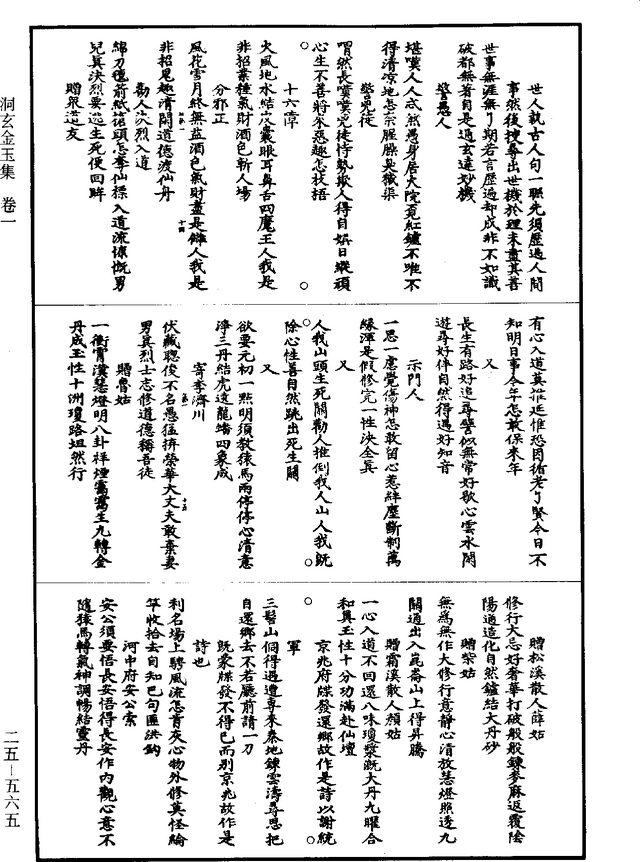 洞玄金玉集 卷一
二五—五六五
世人就古人句一聯先須歷過人間
事然後搜尋出世機於理未盡其善
世事無涯無了期若言歷過却成非不如識
破都無著自是通玄達妙機
警愚人
堪嘆人人忒然愚身居大院覓紅鑪不唯不
得清涼地怎奈腥臊臭穢渠
警兇徒
喟然長嘆嘆兇徒恃勢欺人得自娛日縱頑
心生不善將來惡趣怎枝梧
十六障
火風地水結皮囊眼耳鼻舌四魔王人我是
非招業種氣財酒色斬人場
分邪正
風花雪月終無益酒色氣財盡是讎人我是
非招鬼趣清閑道德渡仙舟
勸人決烈入道
綿刀慢煎紙蒞頭怎奪仙標入道流慷慨男
兒真決烈要逃生死便回眸
贈衆道友
有心入道莫推延惟恐因循老了賢今日不
知明日事今年怎敢保來年
又
長生有路好追尋譬似無常好歇心雲水閑
遊尋好伴自然得遇好知音
示門人
一思一慮覺傷神怎敢留心惹絆塵斷制萬
緣渾是假修完一性決全真
又
人我山頭生死關勸人推倒我人山人我既
除心性善自然跳出死生關
又
欲要元初一點明須教猿馬兩停停心清意
淨三丹結虎遶龍蟠四象成
寄李濟川
伏藏聰俊不名愚猛捹榮華大丈夫敢棄妻
男真烈士志修道德稱吾徒
贈魯姑
一衝霄漢慧燈明八卦祥煙靄靄生九轉金
丹成玉性十洲瓊路坦然行
贈松溪散人薛姑
修行大忌好奢華打破般般鍊麥麻返覆陰
陽通造化自然鑪結大丹砂
贈柴姑
無爲無作大修行意靜心清放慧燈照透九
關通出入崑崙山上得昇騰
贈霜溪散人顏姑
一心入道不回還八味瓊漿溉大丹九曜合
和真玉性十分功滿赴仙壇
京兆府牒發還鄉故作是詩以謝統
軍
三髻山侗得遇遭專來秦地鍊雲濤尋思把
自還鄉去不若廳前請一刀
既蒙牒發不得已而別京兆故作是
詩也
利名場上騁風流怎肯灰心物外修莫怪綸
竿收拾去自知巴句匪洪鈎
河中府安公索
安公須要悟長安悟得長安作內觀心意不
隨猿馬轉氣神調暢結靈丹